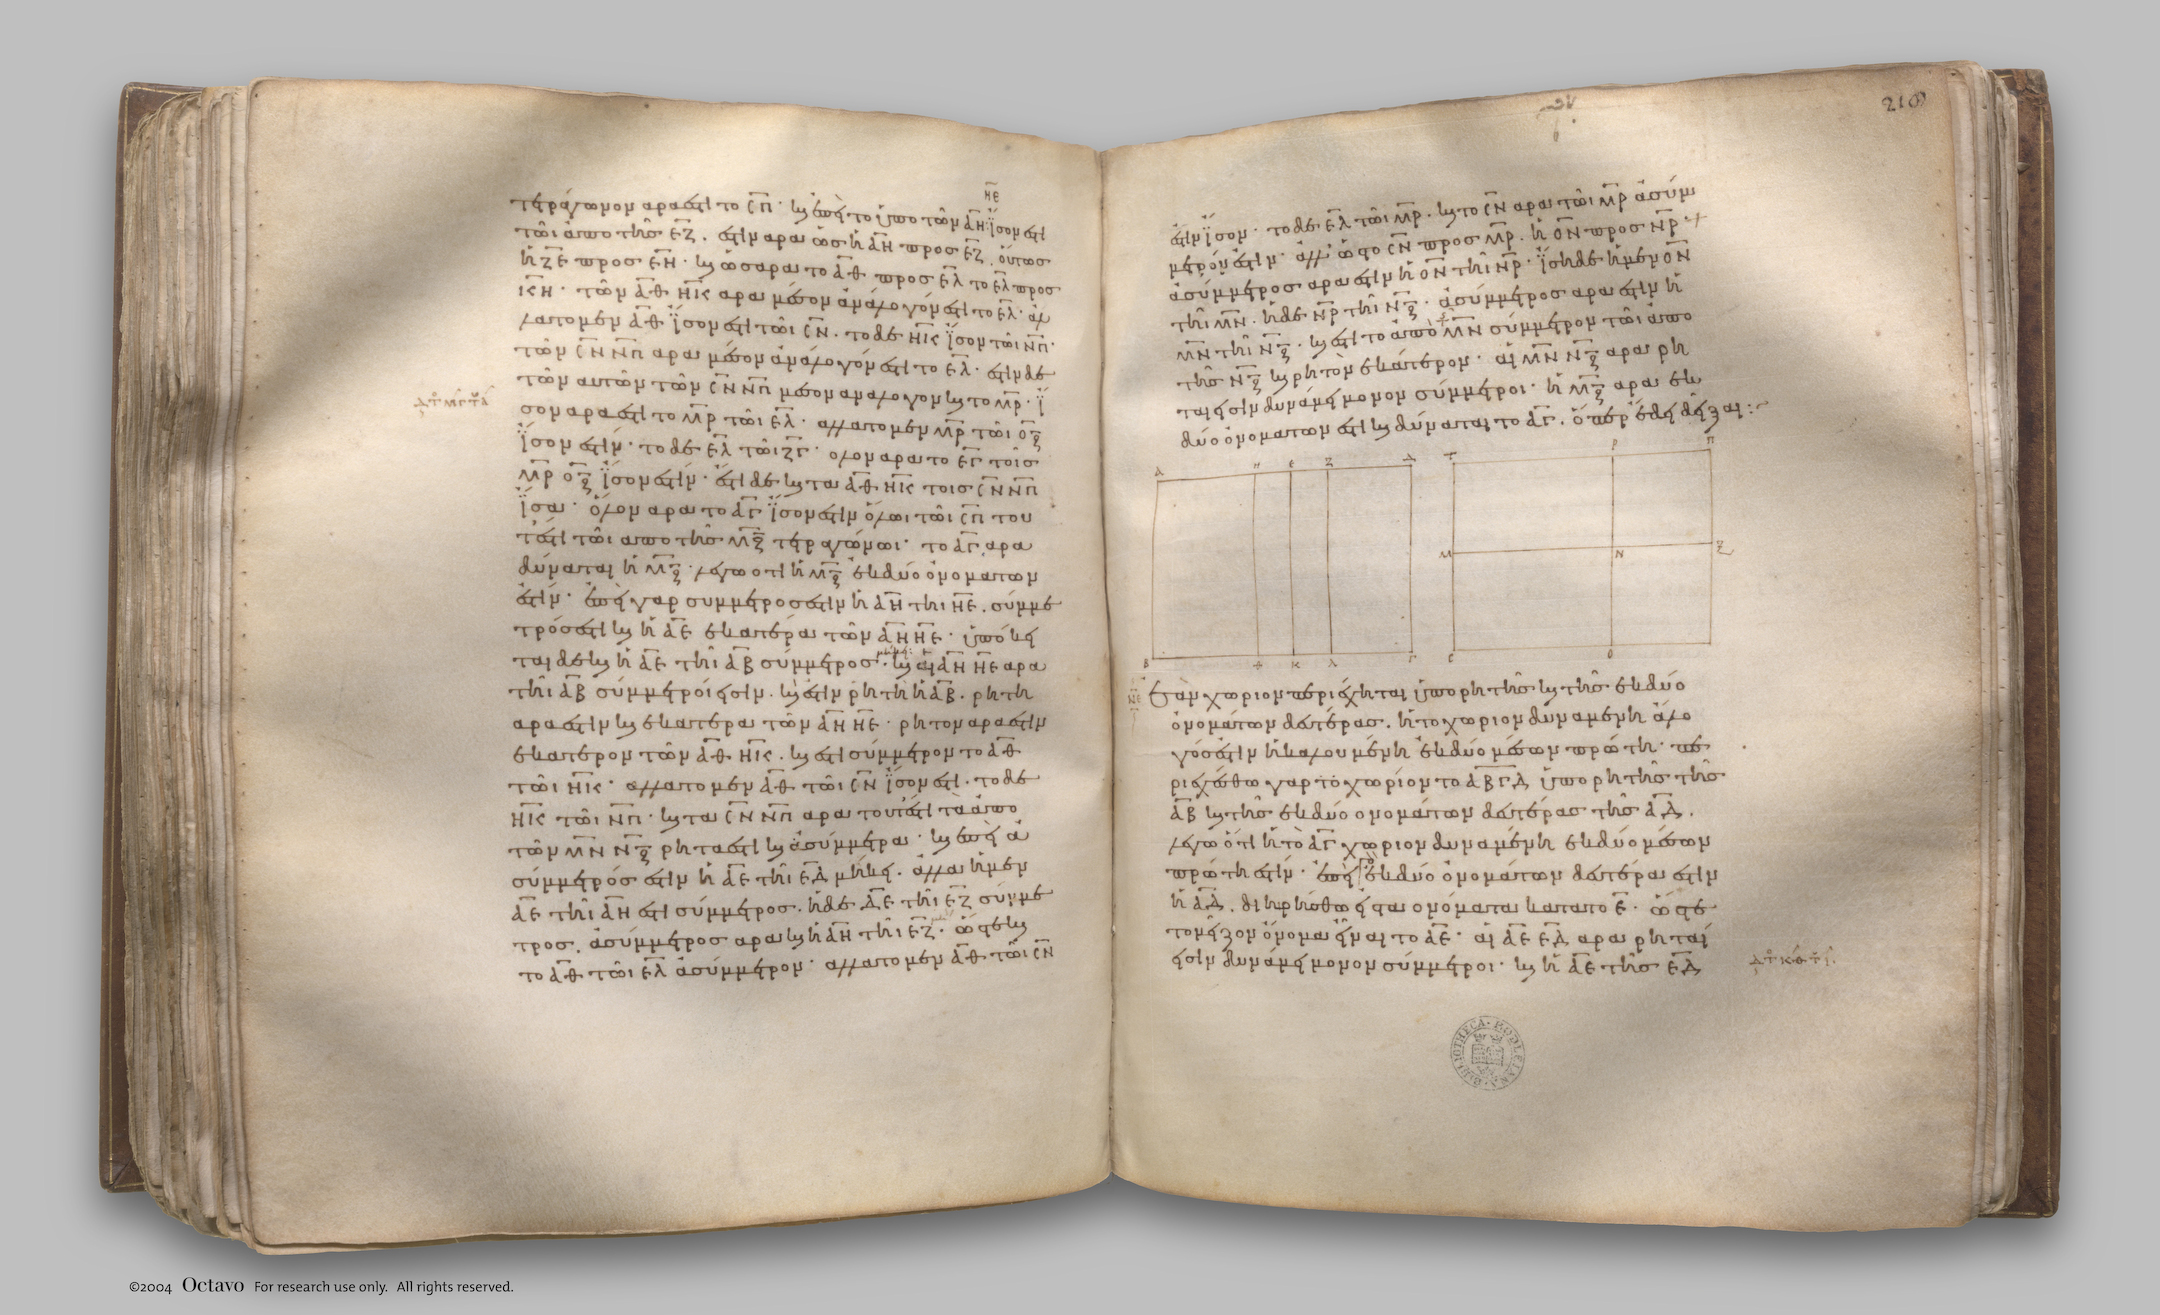 ΗΕ
τετράγωνον ἄρα ἐστὶ τὸ ϹΠ· καὶ ἐπεὶ τὸ ὑπὸ τῶν ΑΗ ἴσον ἐστὶ
τῶι ἀπὸ τῆς ΕΖ. ἔστιν ἄρα ὡς ἡ ΑΗ πρὸς ΕΖ, οὕτως
ἡ ΖΕ πρὸς ΕΗ· καὶ ὡς ἄρα τὸ ΑΘ πρὸς ΕΛ τὸ ΕΛ πρὸς
ΚΗ· τῶν ΑΘ ΗΚ ἄρα μέσον ἀνάλογόν ἐστι τὸ ΕΛ· ἀλ
λὰ τὸ μὲν ΑΘ ἴσον ἐστὶ τῶι ϹΝ. τὸ δὲ ΗΚ ἴσον τῶι ΝΠ·
τῶν ϹΝ ΝΠ ἄρα μέσον ἀνάλογόν ἐστι τὸ ΕΛ· ἔστιν δὲ
τῶν αὐτῶν τῶν ϹΝ ΝΠ μέσον ἀνάλογον καὶ τὸ ΜΡ· ἴ
σον ἄρα ἐστὶ τὸ ΜΡ τῶι ΕΛ· ἀλλὰ τὸ μὲν ΜΡ τῶι ΟΞ
ἴσον ἐστίν· τὸ δὲ ΕΛ τῶι ΖΓ· ὅλον ἄρα τὸ ΕΓ τοῖς
ΜΡ ΟΞ ἴσον ἐστίν· ἔστι δὲ καὶ τὰ ΑΘ ΗΚ τοῖς ϹΝ ΝΠ
ἴσα· ὅλον ἄρα τὸ ΑΓ ἴσον ἐστὶν ὅλωι τῶι ϹΠ του
τέστι τῶι ἀπὸ τῆς ΜΞ τετραγώνωι· τὸ ΑΓ ἄρα
δύναται ἡ ΜΞ· λέγω ὅτι ἡ ΜΞ ἐκ δύο ὀνομάτων
ἐστίν· ἐπεὶ γὰρ σύμμετρός ἐστιν ἡ ΑΗ τῆι ΗΕ. σύμμε
τρός ἐστι καὶ ἡ ΑΕ ἑκατέρα τῶν ΑΗ ΗΕ· ὑπόκει
ται δὲ καὶ ἡ ΑΕ τῆι ΑΒ σύμμετρος· καὶ αἱ ΑΗ ΗΕ ἄρα
τῆι ΑΒ σύμμετροί εἰσιν. καὶ ἔστιν ῥητὴ ἡ ΑΒ. ῥητὴ
ἄρα ἐστὶν καὶ ἑκατέρα τῶν ΑΗ ΗΕ· ῥητὸν ἄρα ἐστὶν
ἑκάτερον τῶν ΑΘ ΗΚ. καὶ ἔστι σύμμετρον τὸ ΑΘ
τῶι ΗΚ· ἀλλὰ τὸ μὲν ΑΘ τῶι ϹΝ ἴσον ἐστί. τὸ δὲ
ΗΚ τῶι ΝΠ· καὶ τὰ ϹΝ ΝΠ ἄρα τουτέστι τὰ ἀπὸ
τῶν ΜΝ ΝΞ ῥητά ἐστι καὶ ἀσύμμετρα· καὶ ἐπεὶ ἀ
σύμμετρός ἐστιν ἡ ΑΕ τῆι ΕΔ μήκει. ἀλλὰ ἡ μὲν
ΑΕ τῆι ΑΗ ἐστὶ σύμμετρος. ἡ δὲ ΔΕ τῆι ΕΖ σύμμε
τρος. ἀσύμμετρος ἄρα καὶ ἡ ΑΗ τῆι ΕΖ· ὥστε καὶ
τὸ ΑΘ τῶι ΕΛ ἀσύμμετρον· ἀλλὰ τὸ μὲν ΑΘ τῶι ϹΝ
218
ἐστὶν ἴσον· τὸ δὲ ΕΛ τῶι ΜΡ. καὶ τὸ ϹΝ ἄρα τῶι ΜΡ ἀσύμ
μετρόν ἐστιν· ἀλλ' ὡς τὸ ϹΝ πρὸς ΜΡ. ἡ ΟΝ πρὸς ΝΡ·
ἀσύμμετρος ἄρα ἐστὶν ἡ ΟΝ τῆι ΝΡ· ἴση δὲ ἡ μὲν ΟΝ
τῆι ΜΝ. ἡ δὲ ΝΡ τῆι ΝΞ· ἀσύμμετρος ἄρα ἐστὶν ἡ
ΜΝ τῆι ΝΞ. καὶ ἔστι τὸ ἀπὸ ΜΝ σύμμετρον τῶι ἀπὸ
τῆς ΝΞ καὶ ῥητὸν ἑκάτερον· αἱ ΜΝ ΝΞ ἄρα ῥη
ταί εἰσιν δυνάμει μόνον σύμμετροι· ἡ ΜΞ ἄρα ἐκ
δύο ὀνομάτων ἐστὶ καὶ δύναται τὸ ΑΓ. ὅπερ ἔδει δεῖξαι:
Α Η Ε Ζ Δ Τ Ρ Π
Μ Ν Ξ
Β Θ Κ Λ Γ Ϲ Ο
ΝΕ
Ἐὰν χωρίον περιέχηται ὑπὸ ῥητῆς καὶ τῆς ἐκ δύο
ὀνομάτων δευτέρας. ἡ τὸ χωρίον δυναμένη ἄλο
γός ἐστιν ἡ καλουμένη ἐκ δύο μέσων πρώτη· πε
ριεχέσθω γὰρ τὸ χωρίον τὸ ΑΒΓΔ ὑπὸ ῥητῆς τῆς
ΑΒ καὶ τῆς ἐκ δύο ὀνομάτων δευτέρας τῆς ΑΔ.
λέγω ὅτι ἡ τὸ ΑΓ χωρίον δυναμένη ἐκ δύο μέσων
πρώτη ἐστίν· ἐπεὶ ἐκ δύο ὀνομάτων δευτέρα ἐστὶν
ἡ ΑΔ. διηρήσθω εἰς τὰ ὀνόματα κατὰ τὸ Ε· ὥστε
τὸ μεῖζον ὄνομα εἶναι τὸ ΑΕ· αἱ ΑΕ ΕΔ ἄρα ῥηταί
εἰσιν δυνάμει μόνον σύμμετροι· καὶ ἡ ΑΕ τῆς ΕΔ
BIBLIOTHECA BODLEIANA
©2004 Octavo For research use only. All rights reserved.